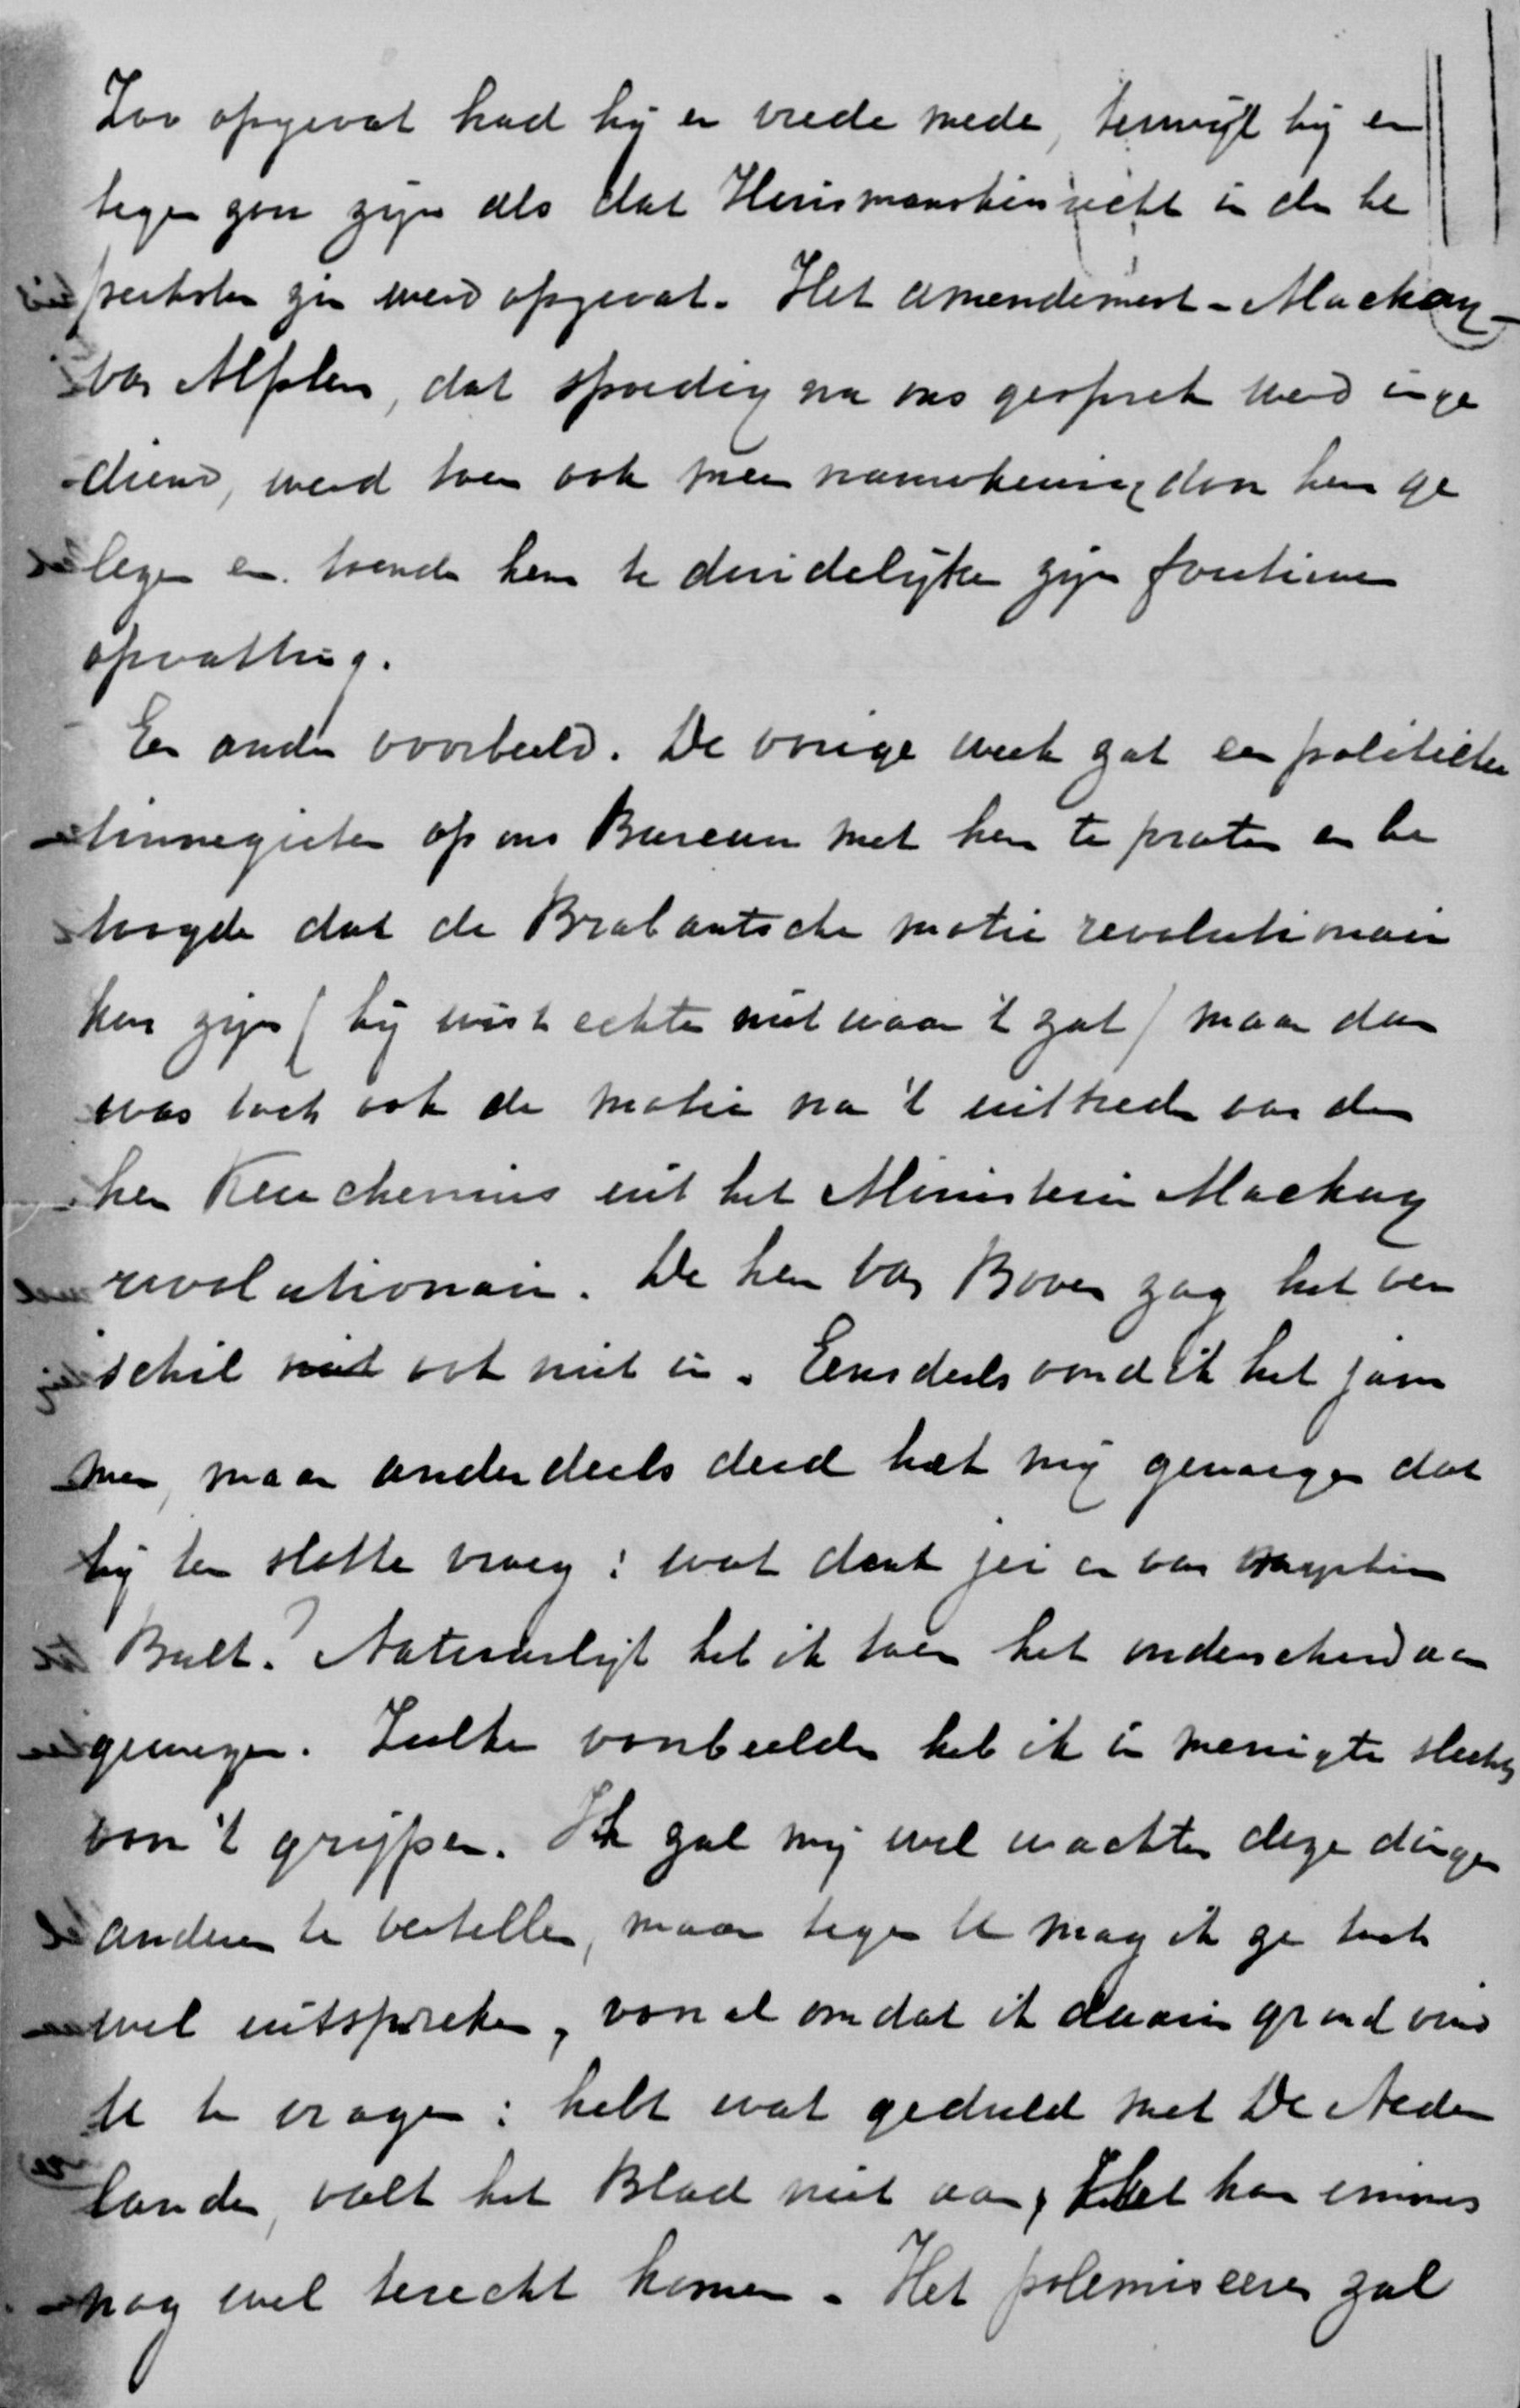 Zoo opgevat had hij er vrede mede, terwijl hij er
tegen zou zijn als dat Huismanskiesrecht in de be
perktste zin werd opgevat. Het amendement-Mackay-
van Alphen, dat spoedig na ons gesprek werd inge
diend, werd toen ook met nauwkeurig door hem ge
lezen en toonde hem te duidelijker zijn foutieve
opvatting.
Een ander voorbeeld. De vorige week zat een politieke
tinnegieter op ons Bureau met hem te praten en be
toogde dat de Brabantsche motie revolutionair
kon zijn (hij wist echter niet waar 't zat) maar dan
was toch ook de motie na 't uittreden van den
heer Keuchenius uit het Ministerie Mackay
revolutionair. De heer van Boven zag het ver
schil niet ook niet in. Eensdeels vond ik het jam
mer, maar anderdeels deed het mij genoegen dat
hij ten slotte vroeg: wat denk jei er van
Bult? Natuurlijk heb ik toen het onderscheid aan
gewezen. Zulke voorbeelden heb ik in menigte slechts
voor 't grijpen. Ik zal mij wel wachten deze dingen
anderen te vertellen, maar tegen U mag ik ze toch
wel uitspreken, vooral omdat ik daarin grond vind
U te vragen: hebt wat geduld met De Neder
lander, valt het Blad niet aan, Het kan immers
nog wel terecht komen. Het polemiseeren zal